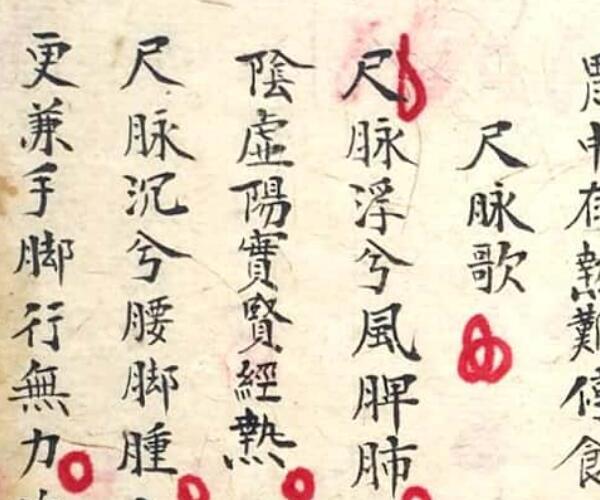 中有熱難停食
尺脉歌
尺脉浮兮風脾肺
陰虛陽實賢經熱
尺脉沉兮腰脚腫
更兼手脚行無力